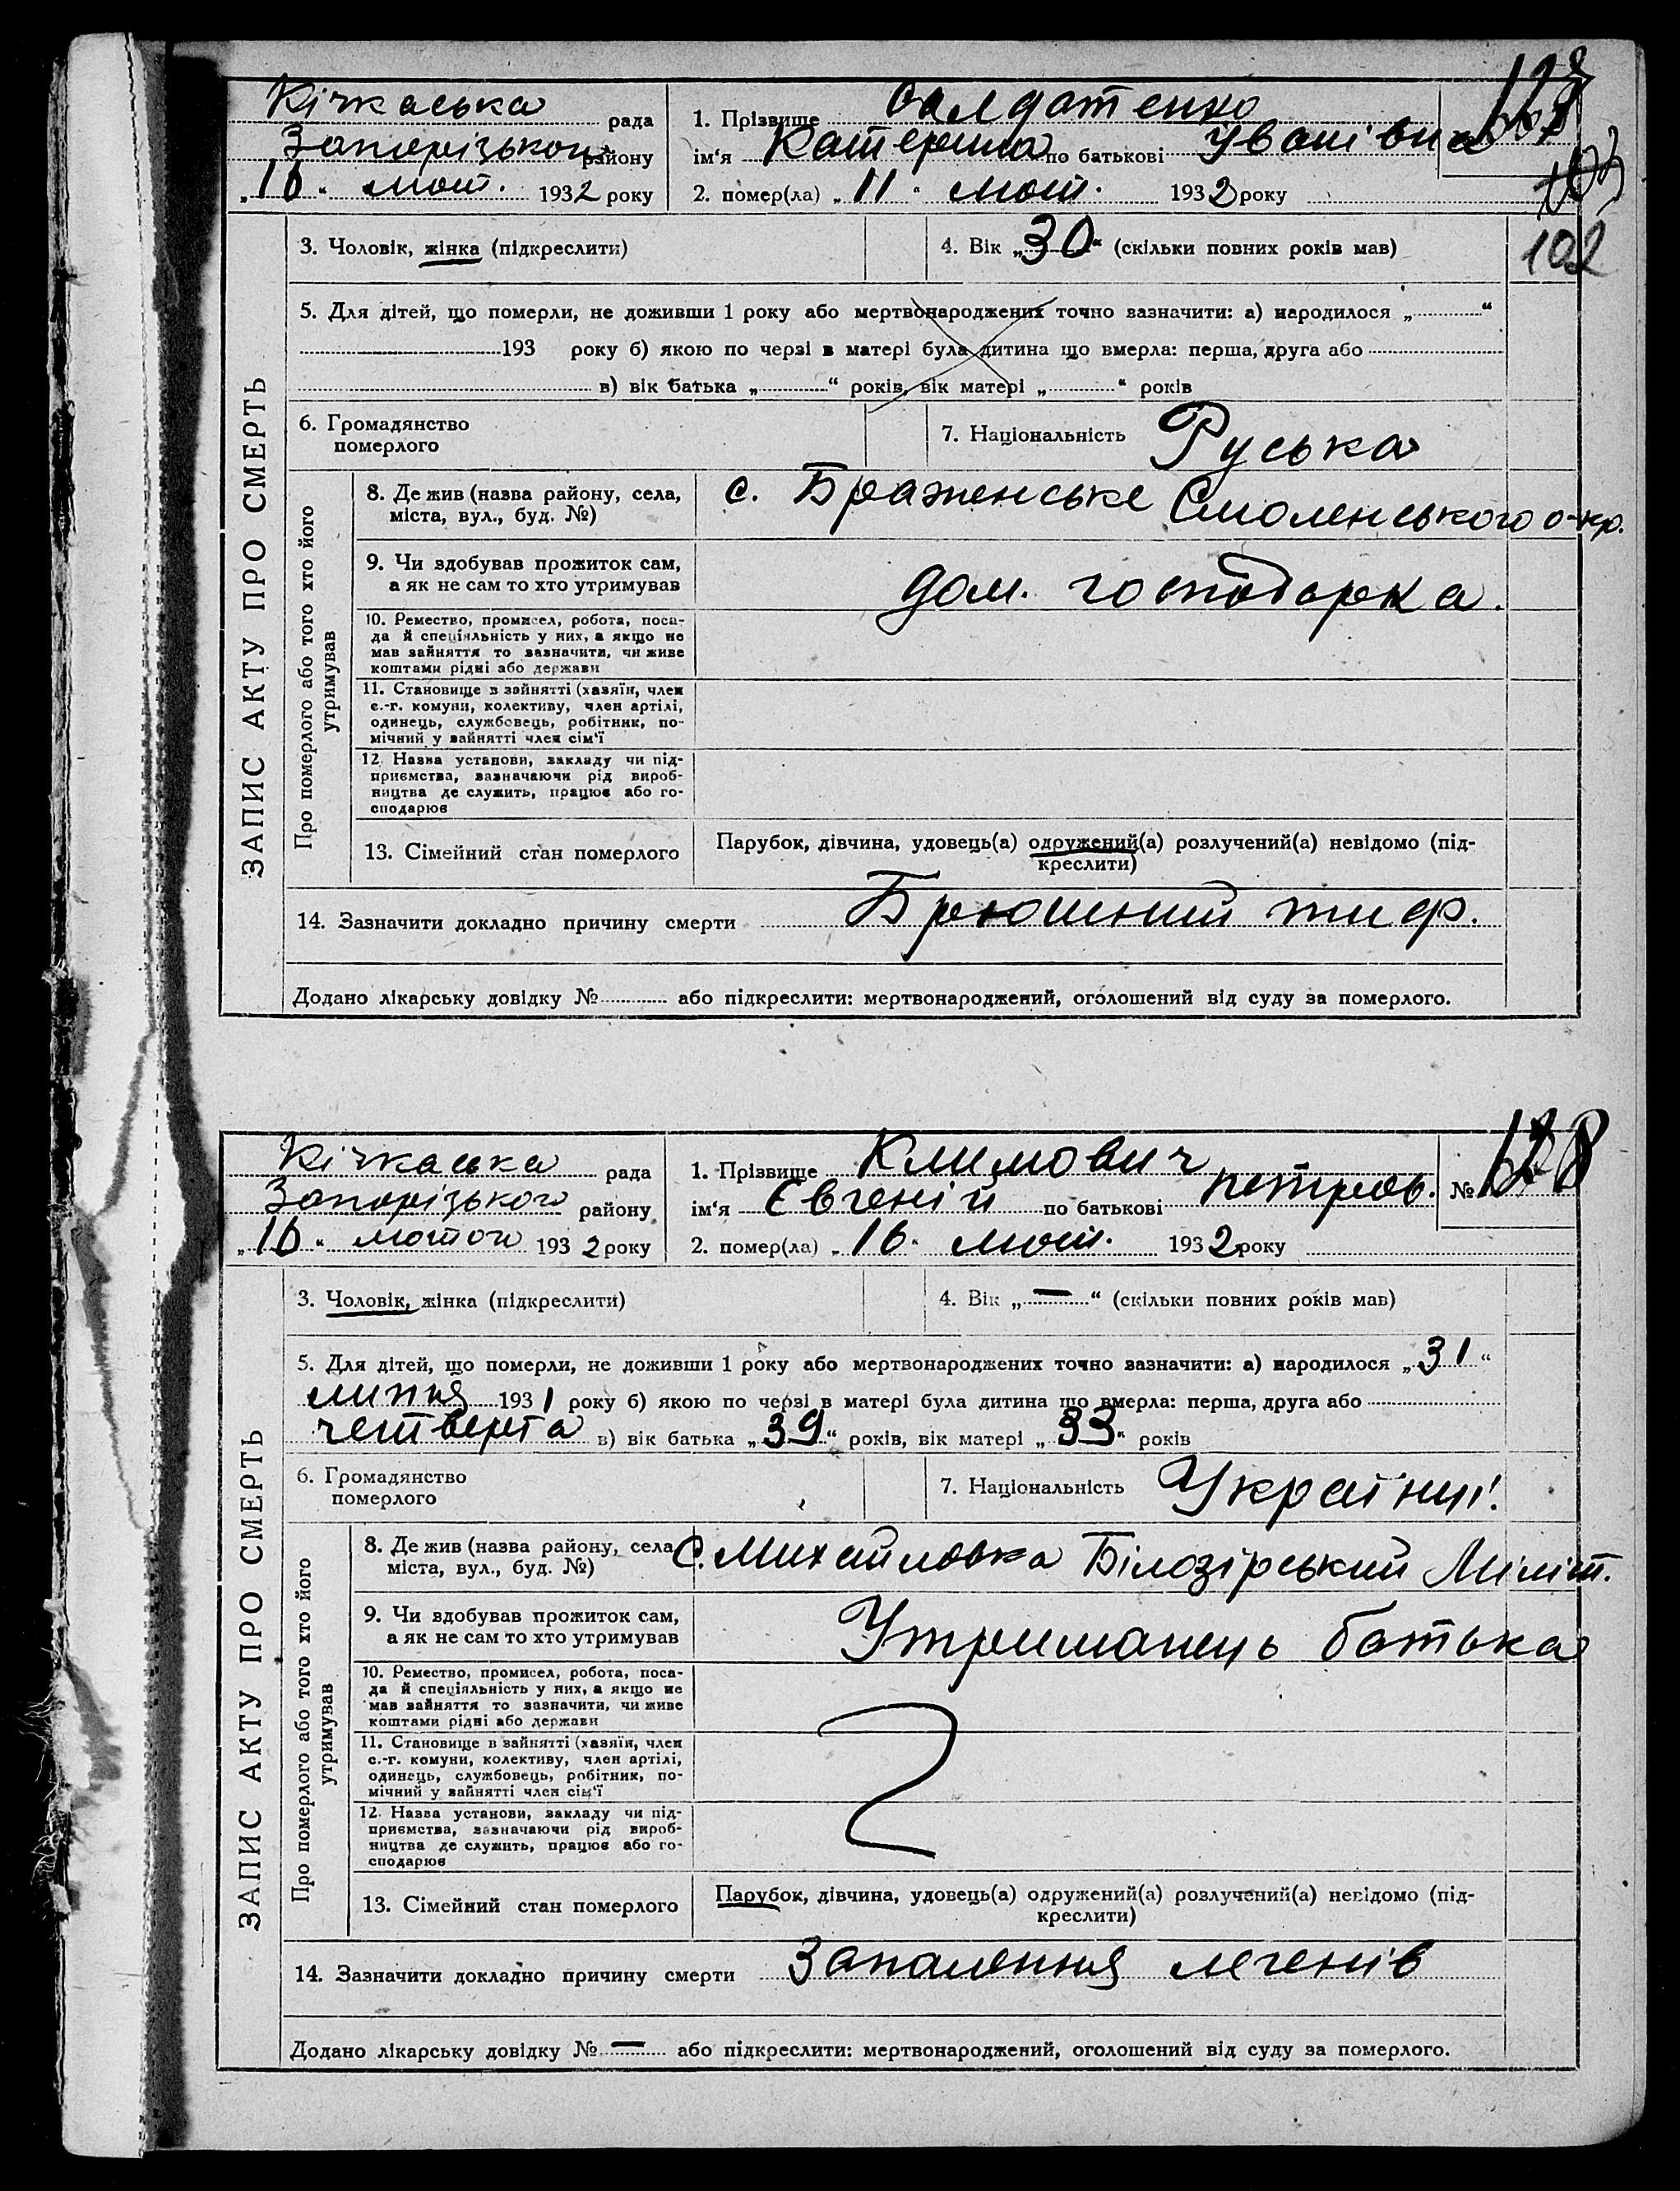 Кічкаська рада
Запорізького району
„16“ лют. 1932 року
1. Прізвище Салдатенко
ім'я Катерина по батькові Уванівна
2. помер(ла) „11“ лют. 1932 року
102
3. Чоловік, жінка (підкреслити)
4. Вік „30“ (скільки повних років мав)
5. Для дітей, що померли, не доживши 1 року або мертвонароджених точно зазначити: а) народилося „ “
193 року б) якою по черзі в матері була дитина що вмерла: перша, друга або
в) вік батька „ “ років, вік матері „ “ років
6. Громадянство
померлого
7. Національність Руська
ЗАПИС АКТУ ПРО СМЕРТЬ
Про померлого або того хто його
утримував
8. Де жив (назва району, села,
міста, вул., буд. №)
с. Браженське Смоленського о-кр.
9. Чи здобував прожиток сам,
а як не сам то хто утримував
дом. господарка.
10. Ремество, промисел, робота, поса-
да й спеціяльність у них, а якщо не
мав зайняття то зазначити, чи живе
коштами рідні або держави
11. Становище в зайнятті (хазяїн, член
с.-г. комуни, колективу, член артілі,
одинець, службовець, робітник, по-
мічний у зайнятті член сім'ї
12. Назва установи, закладу чи під-
приємства, зазначаючи рід вироб-
ництва де служить, працює або го-
сподарює
13. Сімейний стан померлого
Парубок, дівчина, удовець(а) одружений(а) розлучений(а) невідомо (під-
креслити)
14. Зазначити докладно причину смерти Брюшний тиф.
Додано лікарську довідку № або підкреслити: мертвонароджений, оголошений від суду за померлого.
Кічкаська рада
Запорізького району
„16“ лютого 1932 року
1. Прізвище Климович
ім'я Євгеній по батькові петров.
№ 128
2. помер(ла) „16“ лют. 1932 року
3. Чоловік, жінка (підкреслити)
4. Вік „—“ (скільки повних років мав)
5. Для дітей, що померли, не доживши 1 року або мертвонароджених точно зазначити: а) народилося „31“
липня 1931 року б) якою по черзі в матері була дитина що вмерла: перша, друга або
четверта в) вік батька „39“ років, вік матері „33“ років
6. Громадянство
померлого
7. Національність Українц.
ЗАПИС АКТУ ПРО СМЕРТЬ
Про померлого або того хто його
утримував
8. Де жив (назва району, села,
міста, вул., буд. №)
С. Михайловка Білозірський Меліт.
9. Чи здобував прожиток сам,
а як не сам то хто утримував
Утриманець батька
10. Ремество, промисел, робота, поса-
да й спеціяльність у них, а якщо не
мав зайняття то зазначити, чи живе
коштами рідні або держави
11. Становище в зайнятті (хазяїн, член
с.-г. комуни, колективу, член артілі,
одинець, службовець, робітник, по-
мічний у зайнятті член сім'ї
12. Назва установи, закладу чи під-
приємства, зазначаючи рід вироб-
ництва де служить, працює або го-
сподарює
13. Сімейний стан померлого
Парубок, дівчина, удовець(а) одружений(а) розлучений(а) невідомо (під-
креслити)
14. Зазначити докладно причину смерти Запалення легенів
Додано лікарську довідку № — або підкреслити: мертвонароджений, оголошений від суду за померлого.